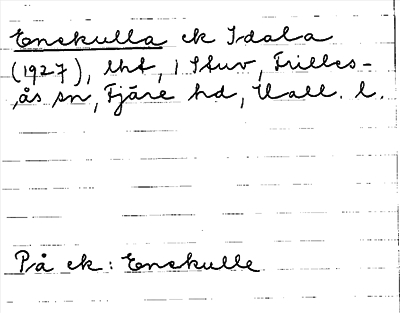 Enskulla ek Idala
(1927), lht, i Stuv, Frilles-
ås sn, Fjäre hd, Hall. l.
På ek: Enskulle